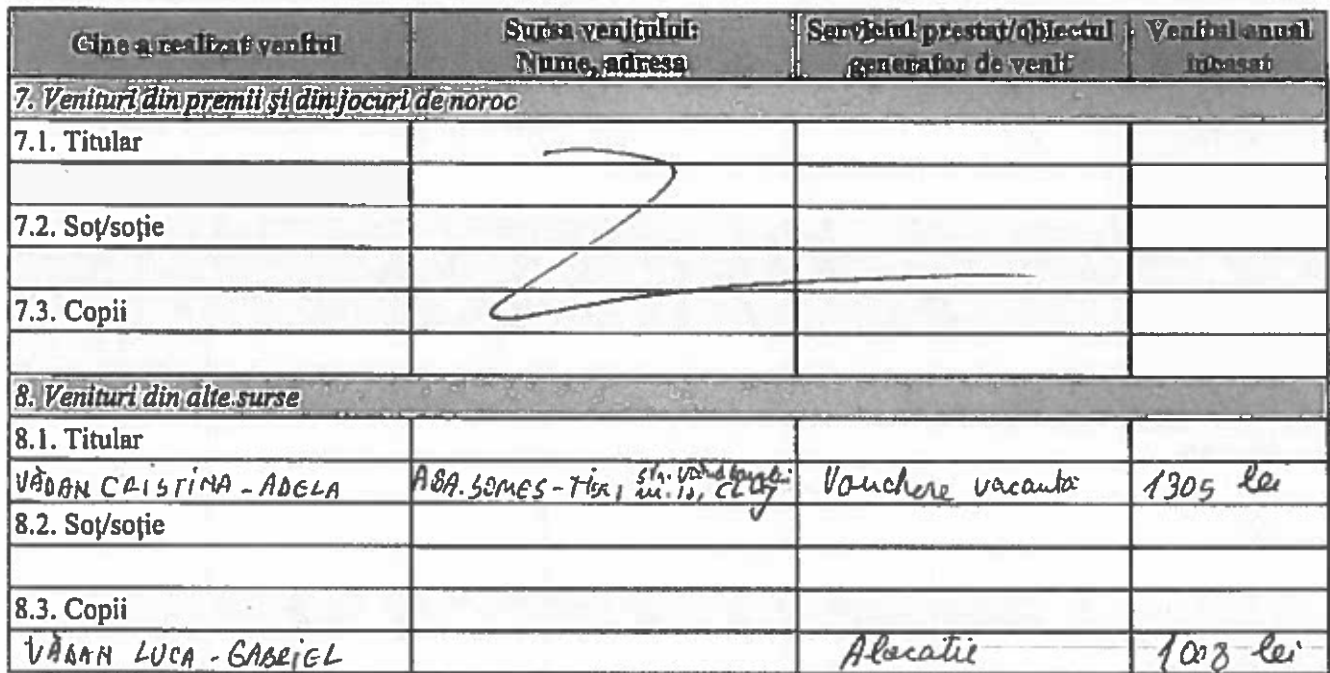 Cine a realizat venitul Sursa venitului: Nume, adresa Serviciul prestat/obiectul generator de venit Venitul anual încasat
7. Venituri din premii și din jocuri de noroc
7.1. Titular
7.2. Soț/soție
7.3. Copii
8. Venituri din alte surse
8.1. Titular
VĂDAN CRISTINA-ADELA ABA. SOMEȘ-TISA, str. CLUJ Vouchere vacanta 1305 lei
8.2. Soț/soție
8.3. Copii
VĂDAN LUCA-GABRIEL Alocatie lei